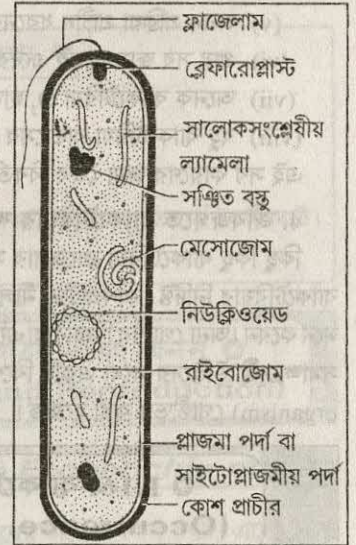 ফ্লাজেলাম
ব্লেফারোপ্লাস্ট
সালোকসংশ্লেষীয়
ল্যামেলা
সঞ্চিত বস্তু
মেসোজোম
নিউক্লিওয়েড
রাইবোজোম
প্লাজমা পর্দা বা
সাইটোপ্লাজমীয় পর্দা
কোশ প্রাচীর